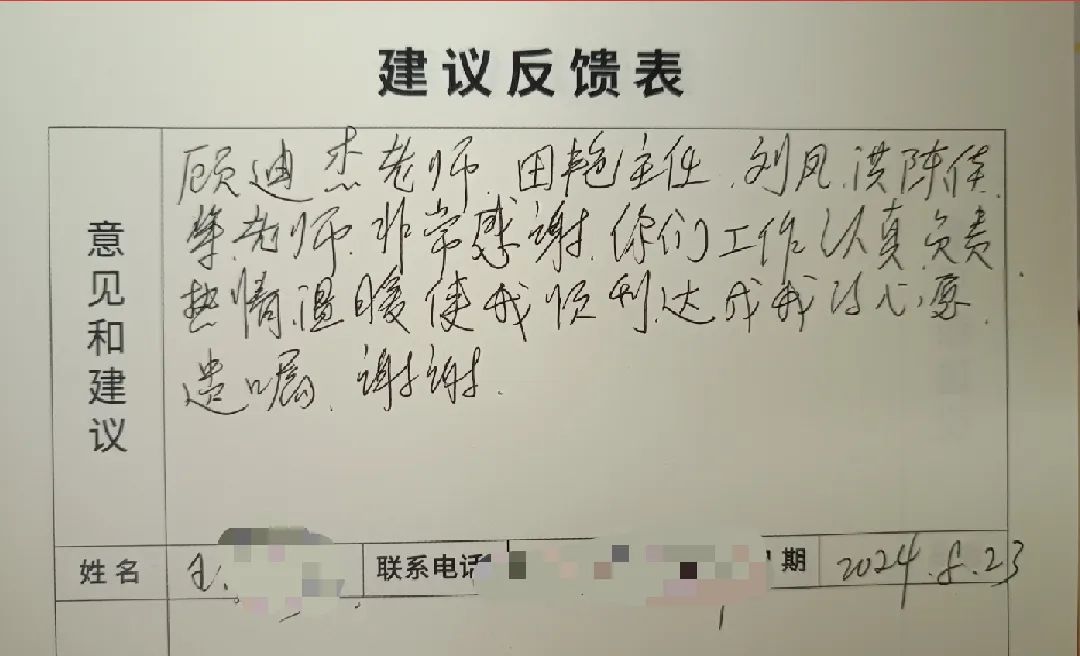 建议反馈表
意见和建议
顾迪杰老师.田艳主任.刘凤.洪陈佳
老师.非常感谢.你们工作认真负责.
热情温暖使我顺利达成我的心愿.
遗嘱.谢谢.
姓名 王. 联系电话 期 2024.8.23